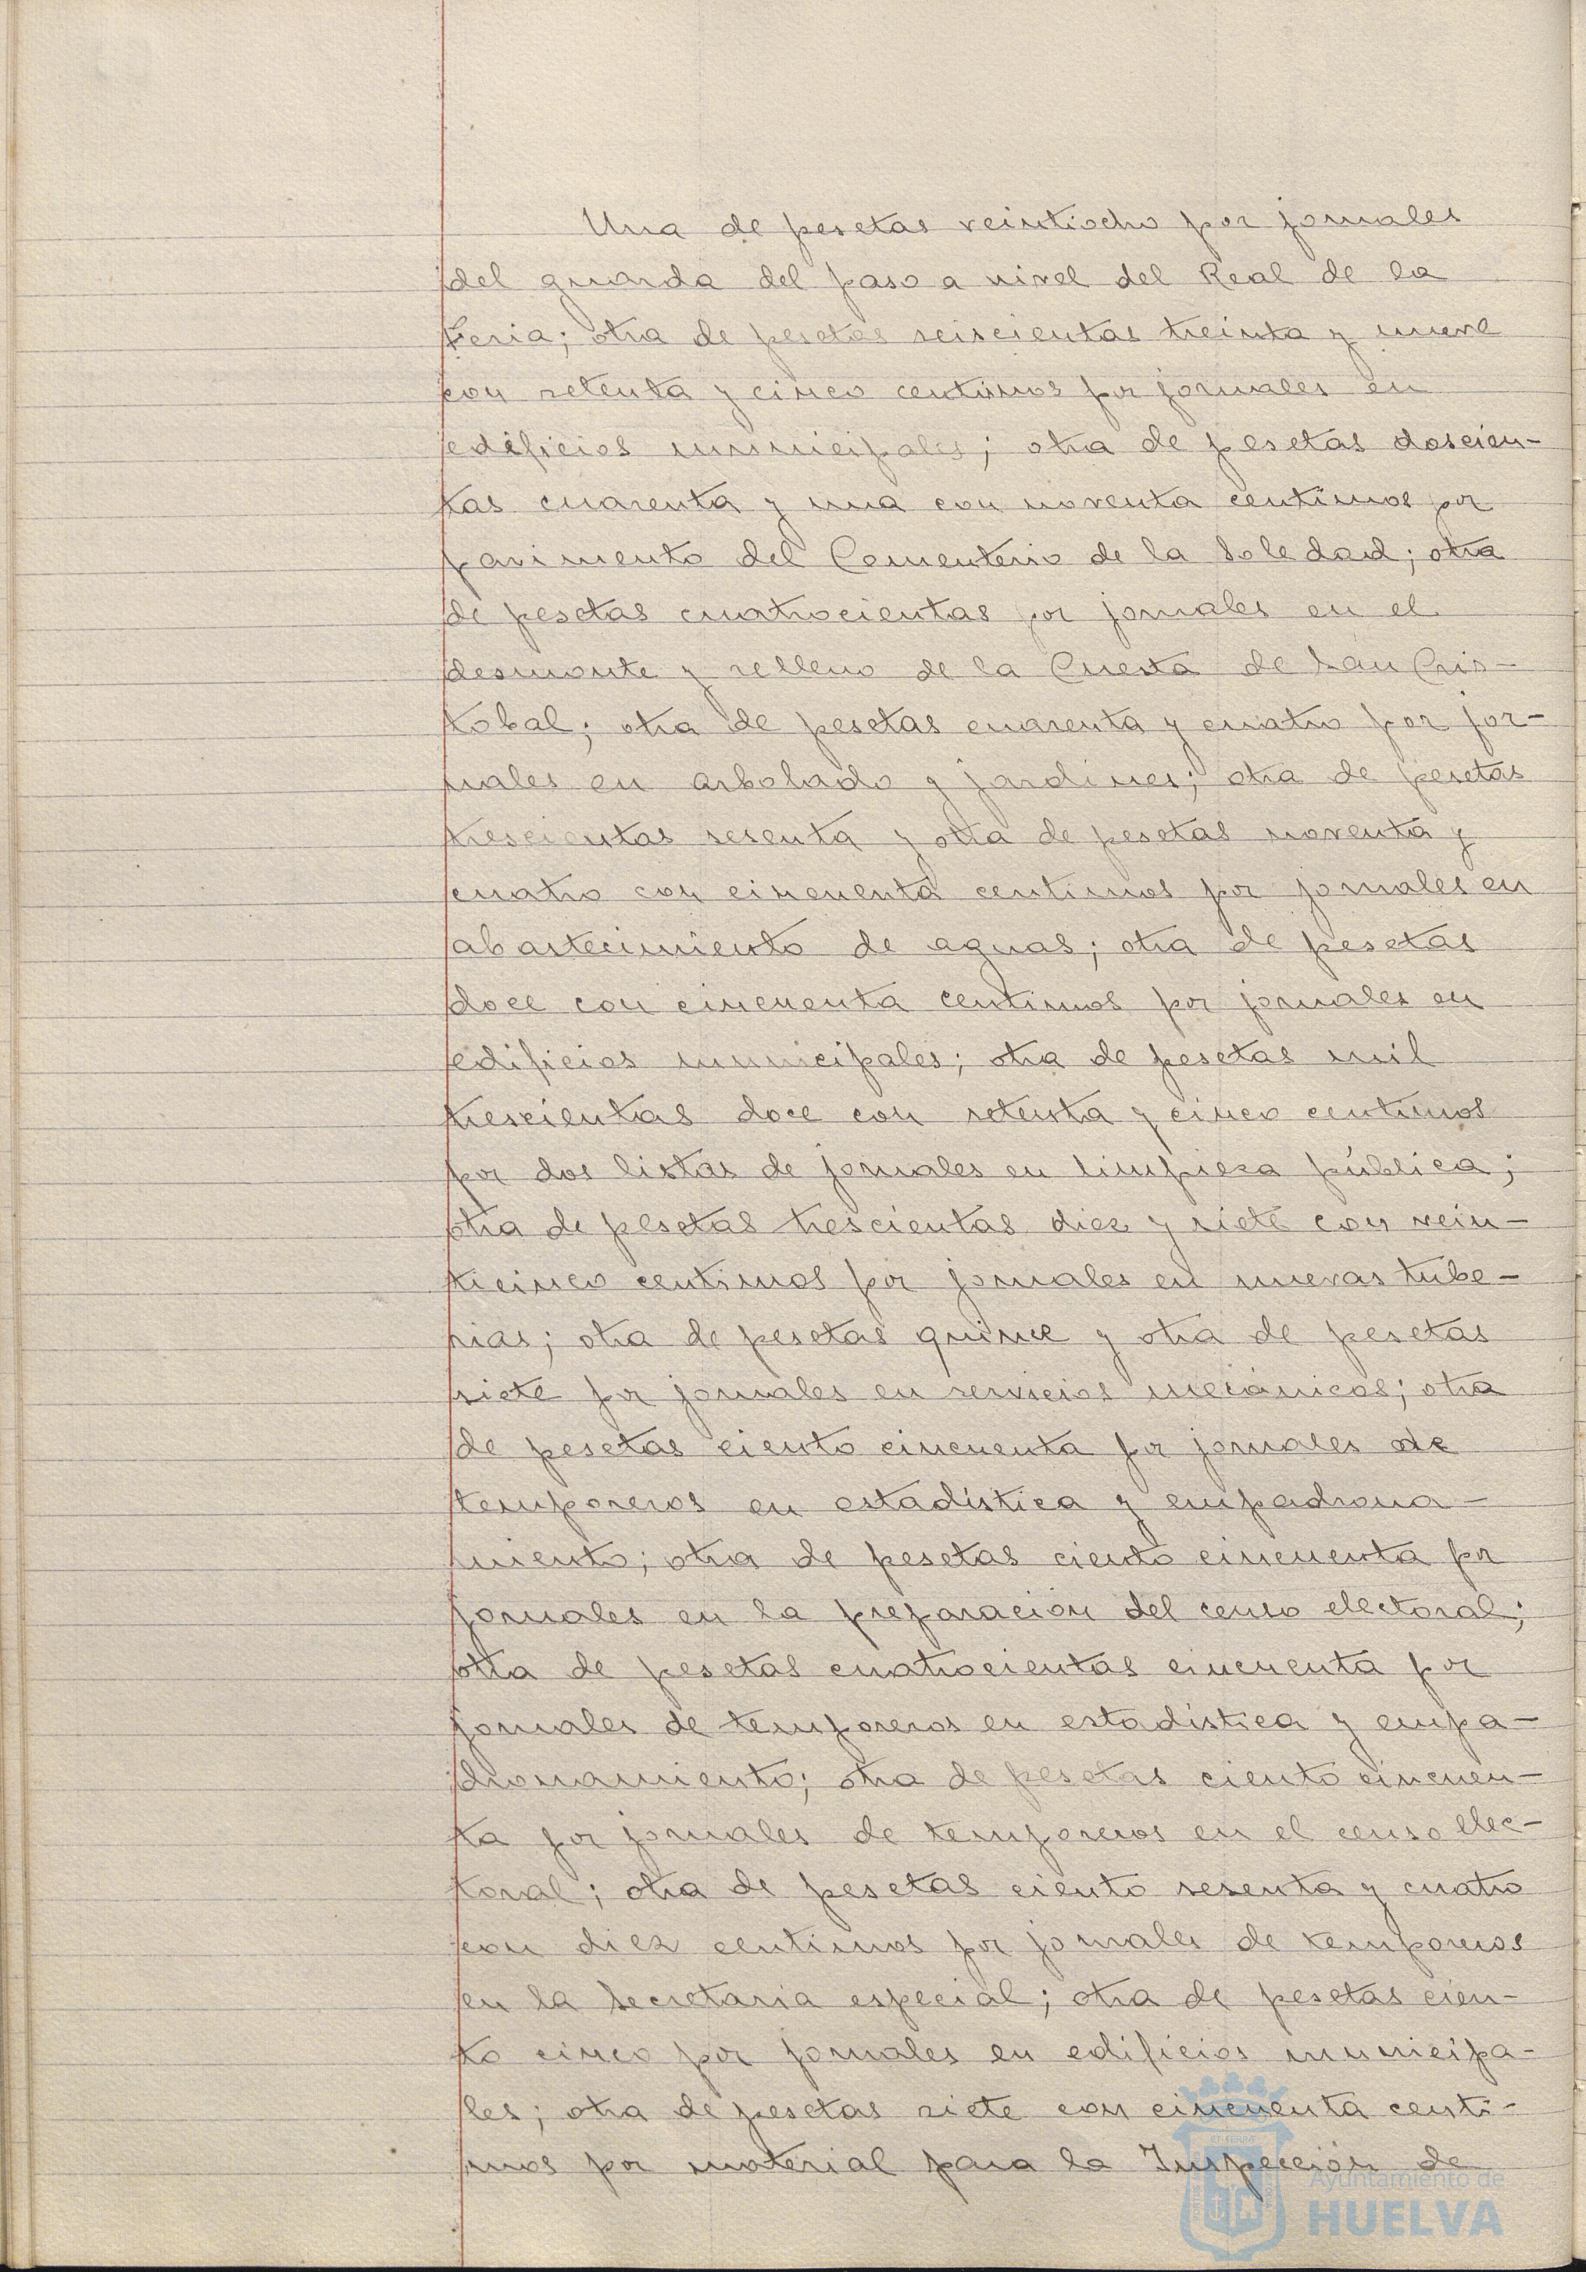 Una de pesetas veintiocho por jornales
del guarda del paso a nivel del Real de la
Feria; otra de pesetas seiscientas treinta y nueve
con setenta y cinco centimos por jornales en
edificios municipales; otra de pesetas doscien-
tas cuarenta y una con noventa centimos por
pavimento del Cementerio de la Soledad; otra
de pesetas cuatrocientas por jornales en el
desmonte y relleno de la Cuesta de San Cris-
tobal; otra de pesetas cuarenta y cuatro por jor-
nales en arbolado y jardines; otra de pesetas
trescientas sesenta y otra de pesetas noventa y
cuatro con cincuenta centimos por jornales en
abastecimiento de aguas; otra de pesetas
doce con cincuenta centimos por jornales en
edificios municipales; otra de pesetas mil
trescientas doce con setenta y cinco centimos
por dos listas de jornales en limpieza pública;
otra de pesetas trescientas diez y siete con vein-
ticinco centimos por jornales en nuevas tube-
rias; otra de pesetas quince y otra de pesetas
siete por jornales en servicios mecánicos; otra
de pesetas ciento cincuenta por jornales de
temporeros en estadística y empadrona-
miento; otra de pesetas ciento cincuenta por
jornales en la preparación del censo electoral;
otra de pesetas cuatrocientas cincuenta por
jornales de temporeros en estadística y empa-
dronamiento; otra de pesetas ciento cincuen-
ta por jornales de temporeros en el censo elec-
toral; otra de pesetas ciento sesenta y cuatro
con diez centimos por jornales de temporeros
en la Secretaria especial; otra de pesetas cien-
to cinco por jornales en edificios municipa-
les; otra de pesetas siete con cincuenta centi-
mos por material para la Inspección de
Ayuntamiento de
HUELVA